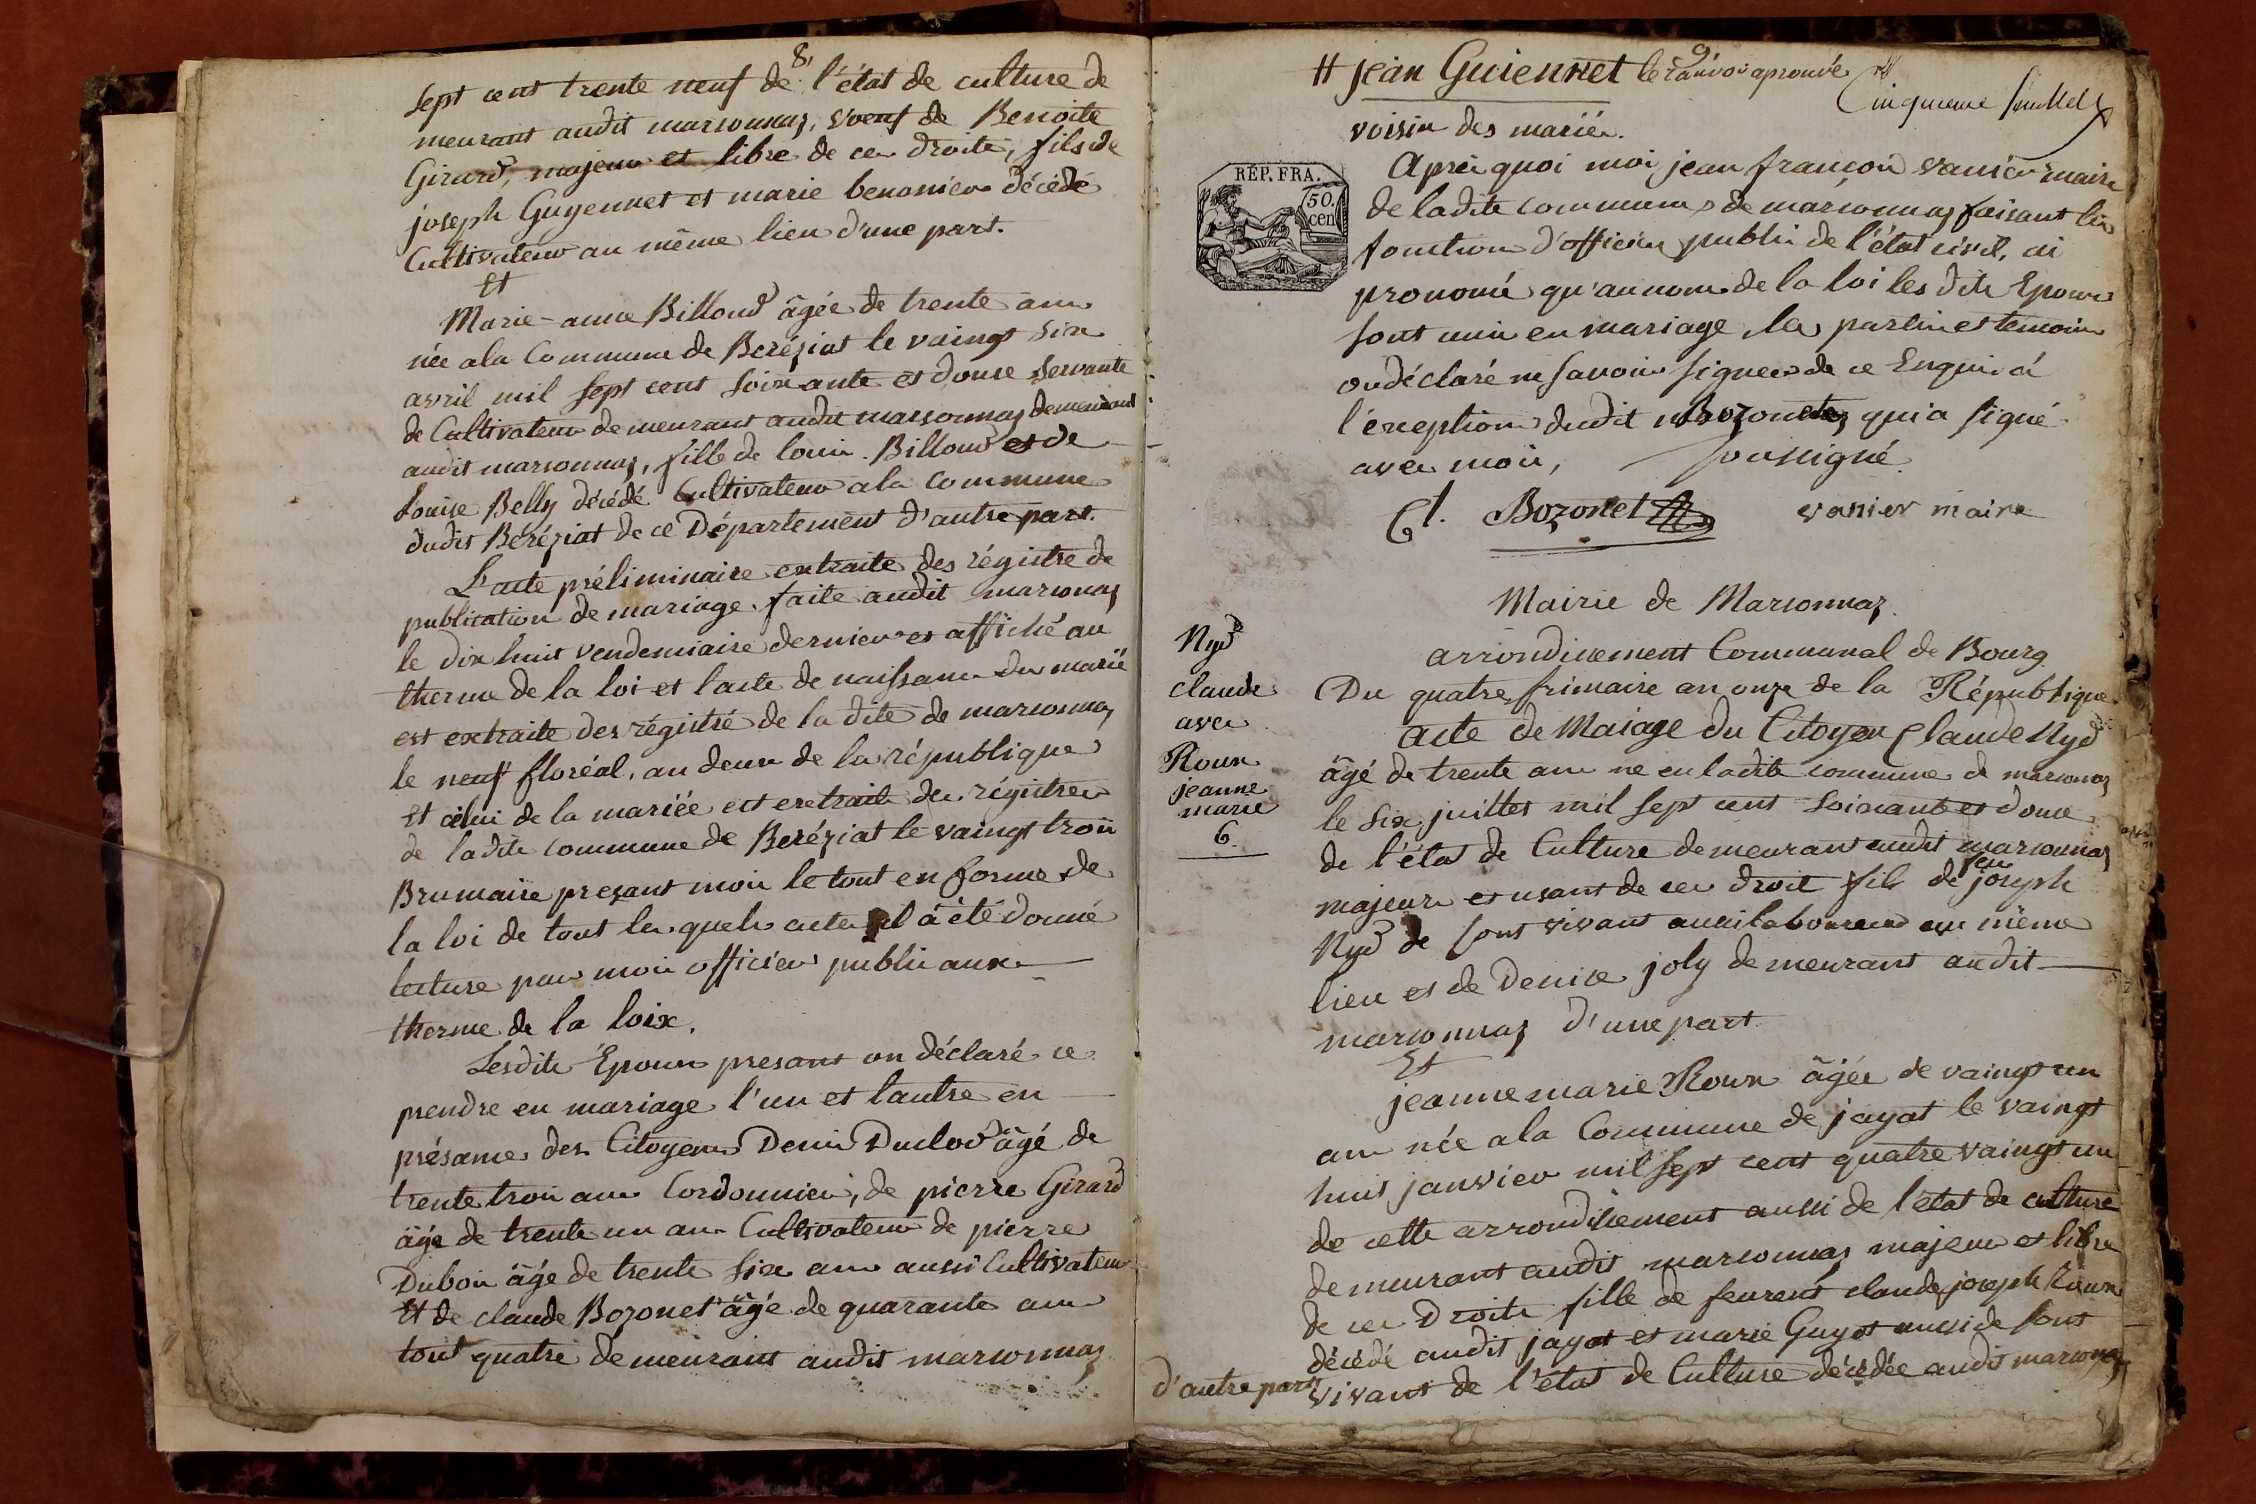 8,
sept cent trente neuf de l'état de culture de
meurant audit marsonnaz, veuf de Benoite
Girard, majeur et libre de ces droits, fils de
joseph Guyennet et marie benonier décédé
Cultivateur au même lieu d'une part.
Et
Marie-anne Billoud âgée de trente ans
née a la Commune de Beréziat le vaingt six
avril mil sept cent soixante et douze servante
de Cultivateur demeurant audit marsonnaz demeurant
audit marsonnaz, fille de louis Billoud et de
Louise Belly décédé Cultivateur a la commune
dudit Béréziat de ce Département d'autre part.
L'acte préliminaire extraite des régistre de
publication de mariage faite audit marsonaz
le dix huit vendemiaire dernier et affiché au
therme de la loi et l'acte de naissance du marié
est extraite des régistré de la dite de marsonnaz
le neuf floréal, an deux de la république
Et célui de la mariée est extrait des régistres
de ladite commune de Beréziat le vaingt trois
Brumaire presant mois le tout en forme de
la loi de tout les quels actes il a été donné
lecture par moi officier public aux
therme de la loix.
Lesdits Epoux presant on déclaré ce
prendre en mariage l'un et l'autre en
présance des Citoyens Denis Duclod âgé de
trente trois ans Cordonnier, de pierre Girard
âgé de trente un ans Cultivateur de pierre
Dubois âgé de trente six ans aussi Cultivateur
Et de claude Bozonet âgé de quarante ans
tout quatre demeurant audit marsonnaz
9
# jean Guiennet le ranvoi aprouvé
Cinquieme feuillet
voisin des mariés.
REP. FRA.
50.
cen
Aprèi quoi moi jean françois vanier maire
de ladite commune de marsonnaz faisant les
fonction d'officier public de l'état civil, ai
pronomé qu'au nom de la loi les dits Epoux
sont unis en mariage, les parties et temoins
on déclaré ne savoir signer de ce Enquis à
l'éxception dudit Bozonet qui a signé
avec moi, soussigné.
Cl. Bozonet vanier maire
Mairie de Marsonnaz.
arrondissement Communal de Bourg
Nyd
claude
avec
Roux
jeanne
marie
6.
Du quatre frimaire an onze de la République
acte de Maiage du Citoyen Claude Nyd
âgé de trente ans ne en ladite commune de marsonaz
le six juillet mil sept cent soixante et douze
de l'état de Culture demeurant audit marsonnaz
majeur et usant de ces droit fils de feu joseph
Nyd de sont vivant aussi laboureur au même
lieu et de Denise joly demeurant audit
marsonnaz d'une part
Et
jeanne marie Roux âgée de vaingt un
ans née a la Commune de jayat le vaingt
huit janvier mil sept cent quatre vaingt un
de cette arrondissement aussi de l'état de culture
demeurant audit marsonnaz majeur et libre
de ces Droits fille de feurent claude joseph Roux
décédé audit jayat et marie Guyot aussi de sont
vivant de l'état de Culture décédée audit marsonaz
d'autre part